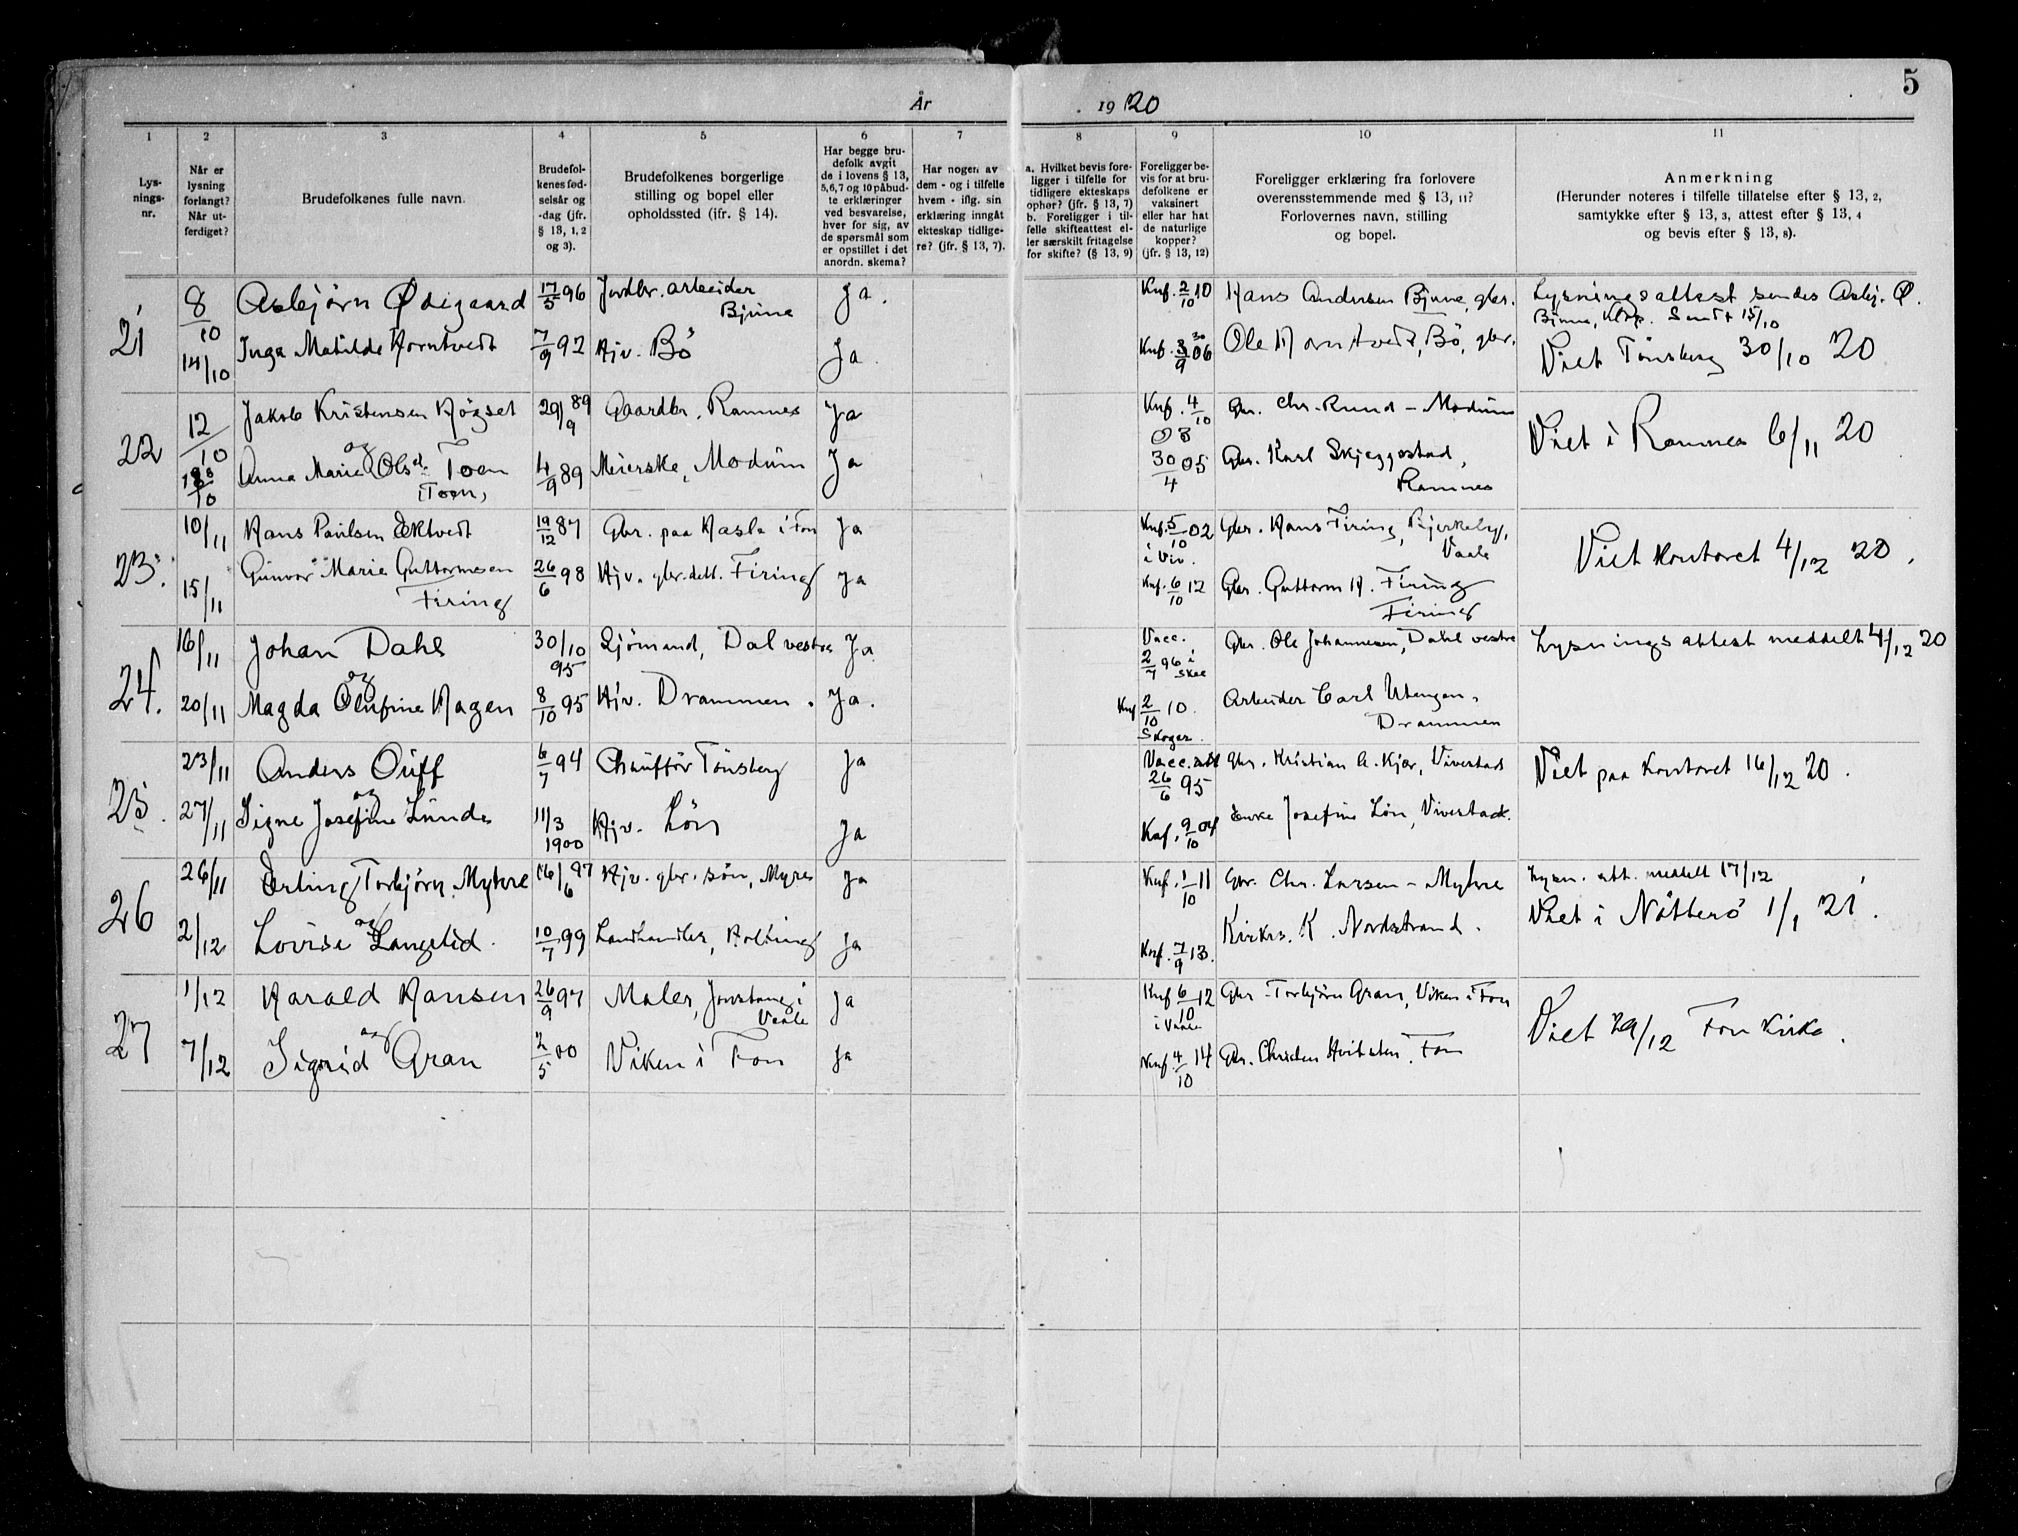 5
År 1920
1 2 3 4 5 6 7 8 9 10 11
Lys-
nings-
nr.
Når er
lysning
forlangt?
Når ut-
ferdiget?
Brudefolkenes fulle navn.
Brudefol-
kenes fød-
selsår og
-dag (jfr.
§ 13, 1, 2
og 3).
Brudefolkenes borgerlige
stilling og bopel eller
opholdssted (ifr. § 14).
Har begge bru-
defolk avgit
de i lovens § 13,
5, 6, 7 og 10 påbud-
te erklæringer
ved besvarelse,
hver for sig, av
de spørsmål som
er opstillet i det
anordn. skema?
Har nogen av
dem - og i tilfelle
hvem - iflg. sin
erklæring inngåt
ekteskap tidlige-
re? (jfr. § 13, 7).
a. Hvilket bevis fore-
ligger i tilfelle for
tidligere ekteskaps
ophør? (jfr. § 13, 7)
b. Foreligger i til-
felle skifteattest el-
ler særskilt fritagelse
for skifte? (§ 13, 9)
Foreligger be-
vis for at bru-
defolkene er
vaksinert
eller har hat
de naturlige
kopper?
(jfr. § 13, 12)
Foreligger erklæring fra forlovere
overensstemmende med § 13, 11?
Forlovernes navn, stilling
og bopel.
Anmerkning
(Herunder noteres i tilfelle tillatelse efter § 13, 2,
samtykke efter § 13, 3, attest efter § 13, 4
og bevis efter § 13, 8).
21 8/10 Asbjørn Ødegaard 17/5 96 Jordbr. arbeider Bjune Ja. Knf. 2/10 10 Hans Andersen Bjune, gbr. Lysningsattest sendes Asbj. Ø.
Bjune, Sendt 15/10
14/10 Inga Matilde Horntvedt 7/9 92 Hjv. Bö Ja. Knf. 06 Ole Horntvedt, Bö, gbr. Viet Tönsberg 30/10 20
22 12/10 Jakob Kristensen Högset 29/9 89 Gaardbr, Ramnes Ja Knf. 4/10 03 Gbr. Chr. Rund - Modum Viet i Ramnes 6/11 20
og
Anna Marie Olsd. Toen 4/9 89 Meierske, Modum Ja 30/4 05 Gbr. Karl Skjeggestad,
Toen, Ramnes
23. 10/11 Hans Paulsen Ektvedt 19/12 87 Gbr. paa Hasle i Fon Ja Knf. 5/10 02 i Viv. Gbr. Hans Firing, Bjerkeby, Vaale Viet Kontoret 4/12 20.
15/11 Gunvor Marie Guttormsen 26/6 98 Hjv. gbr. datt. Firing Ja Knf. 6/10 12 Gbr. Guttorm H. Firing
Firing Firing
24. 16/11 Johan Dahl 30/10 95 Sjömand, Dal vestre Ja Vacc. 2/7 96 i Skee Gbr. Ole Johannesen, Dahl vestre Lysningsattest meddelt 4/12 20
og
20/11 Magda Olufine Hagen 8/10 95 Hjv. Drammen. Ja. Knf 2/10 10. Skoger. Arbeider Carl Utengen,
Drammen
25. 23/11 Anders Ouff 6/7 94 Chaufför Tönsberg Ja Vacc. att 26/6 95 Gbr. Kristian A. Kjær, Vivestad Viet paa Kontoret 16/12 20.
og
27/11 Signe Josefine Lunde 11/3 1900 Hjv. Lön Ja Knf. 9/10 04 Enke Josefine Lön, Vivestad.
26 26/11 Erling Torbjörn Myhre 16/6 97 Hjv. gbr. sön, Myre Ja Knf. 1/10 11 Gbr. Chr. Larsen - Myhre Lysn. att. meddelt 17/12
og
2/12 Lovise Langelid. 10/7 99 Landhandler, Holting Ja Knf. 7/9 13. Kirkes. K. Nordstrand. Viet i Nötterö 1/1 21.
27 1/12 Harald Hansen 26/9 97 Maler, Jonstang i Vaale Ja Knf 6/10 12 i Vaale Gbr. Torbjörn Gran, Viken i Fon
og
7/12 Sigrid Gran 2/5 00 Viken i Fon Ja Knf. 4/10 14 Gbr. Christen Hvitsten, Fon Viet 29/12 Fon Kirke.